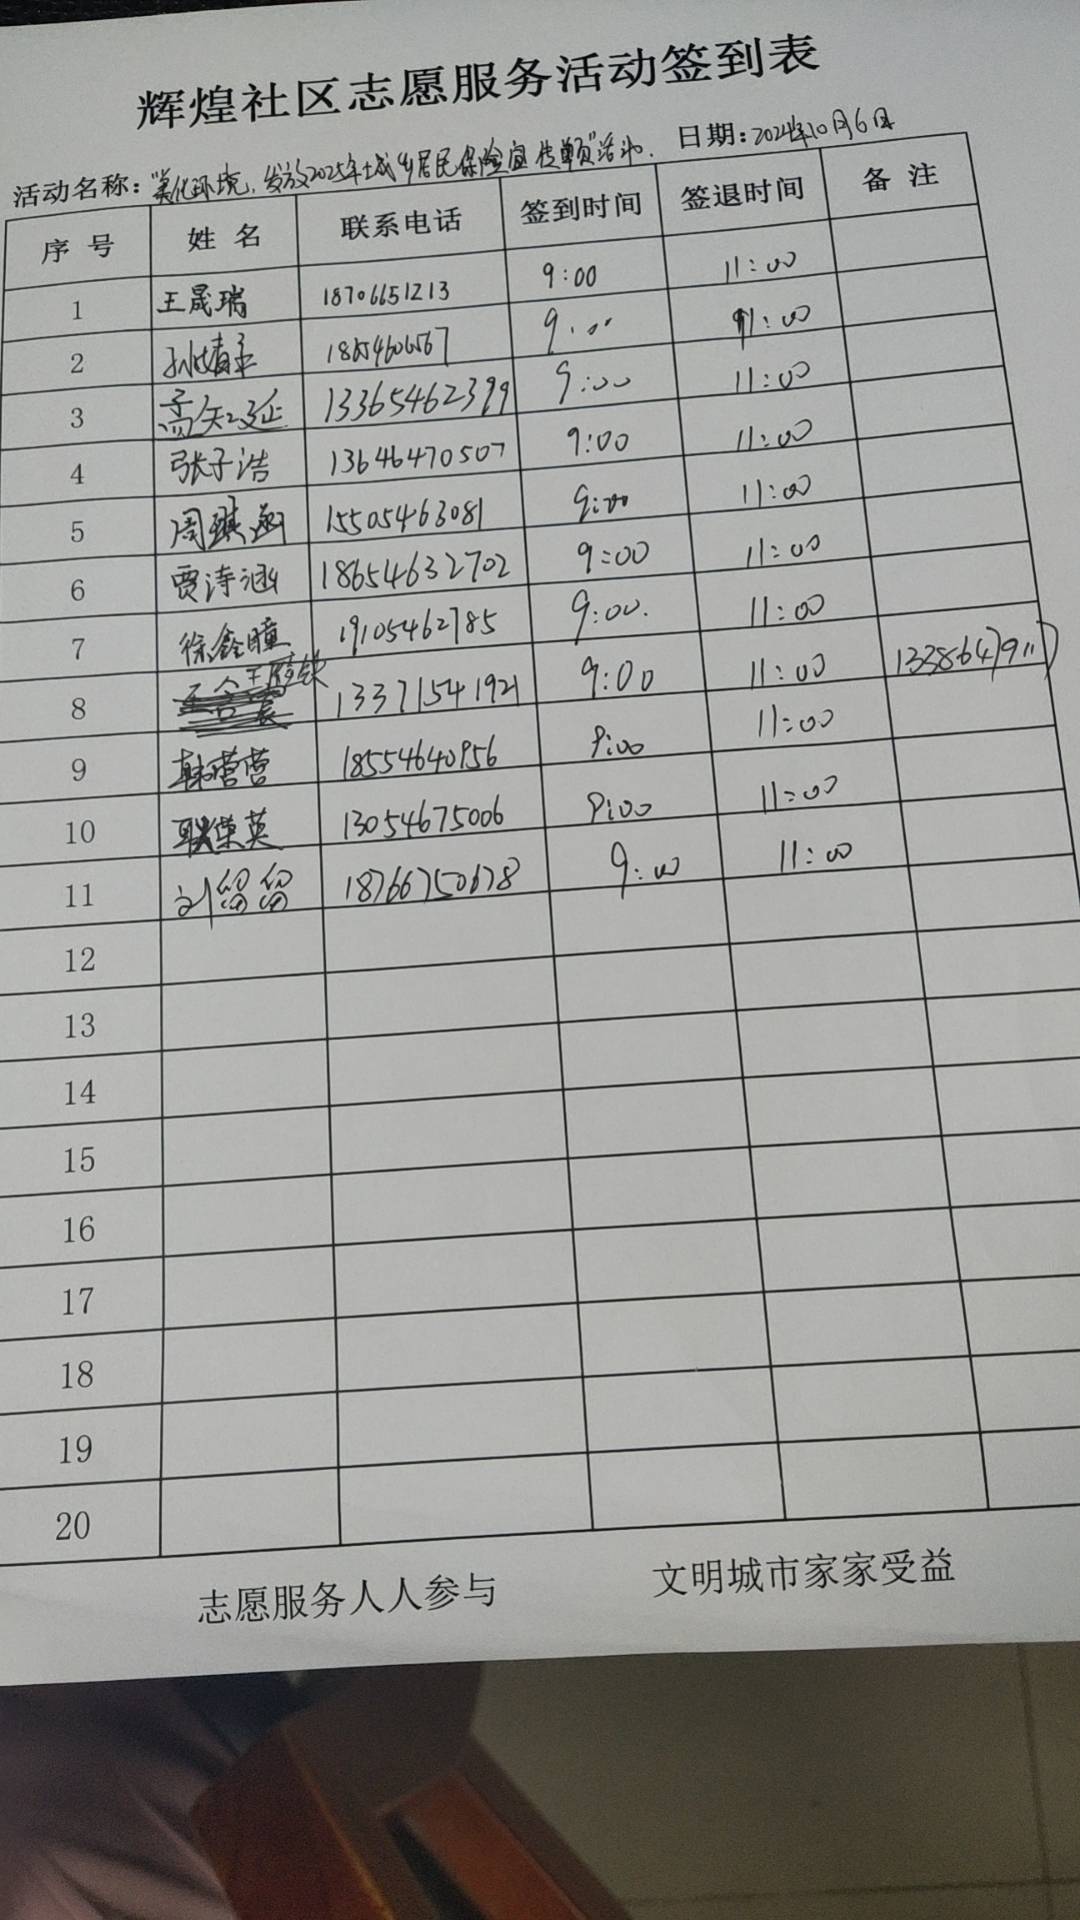 辉煌社区志愿服务活动签到表
活动名称："美化环境,发放2025年城乡居民保险宣传单页"活动. 日期:2024年10月6日
序号 姓名 联系电话 签到时间 签退时间 备注
1 王晟瑞 18706651213 9:00 11:00
2 9:00 11:00
3 高矢延 13365462399 9:00 11:00
4 张子浩 13646470507 9:00 11:00
5 周琪涵 15505463081 9:00 11:00
6 贾诗涵 18654632702 9:00 11:00
7 徐鑫瞳 19105462785 9:00. 11:00
8 13371541921 9:00 11:00 13386479117
9 韩营营 18554640956 9:00 11:00
10 耿荣英 13054675006 9:00 11:00
11 刘留留 18766750678 9:00 11:00
12
13
14
15
16
17
18
19
20
志愿服务人人参与 文明城市家家受益